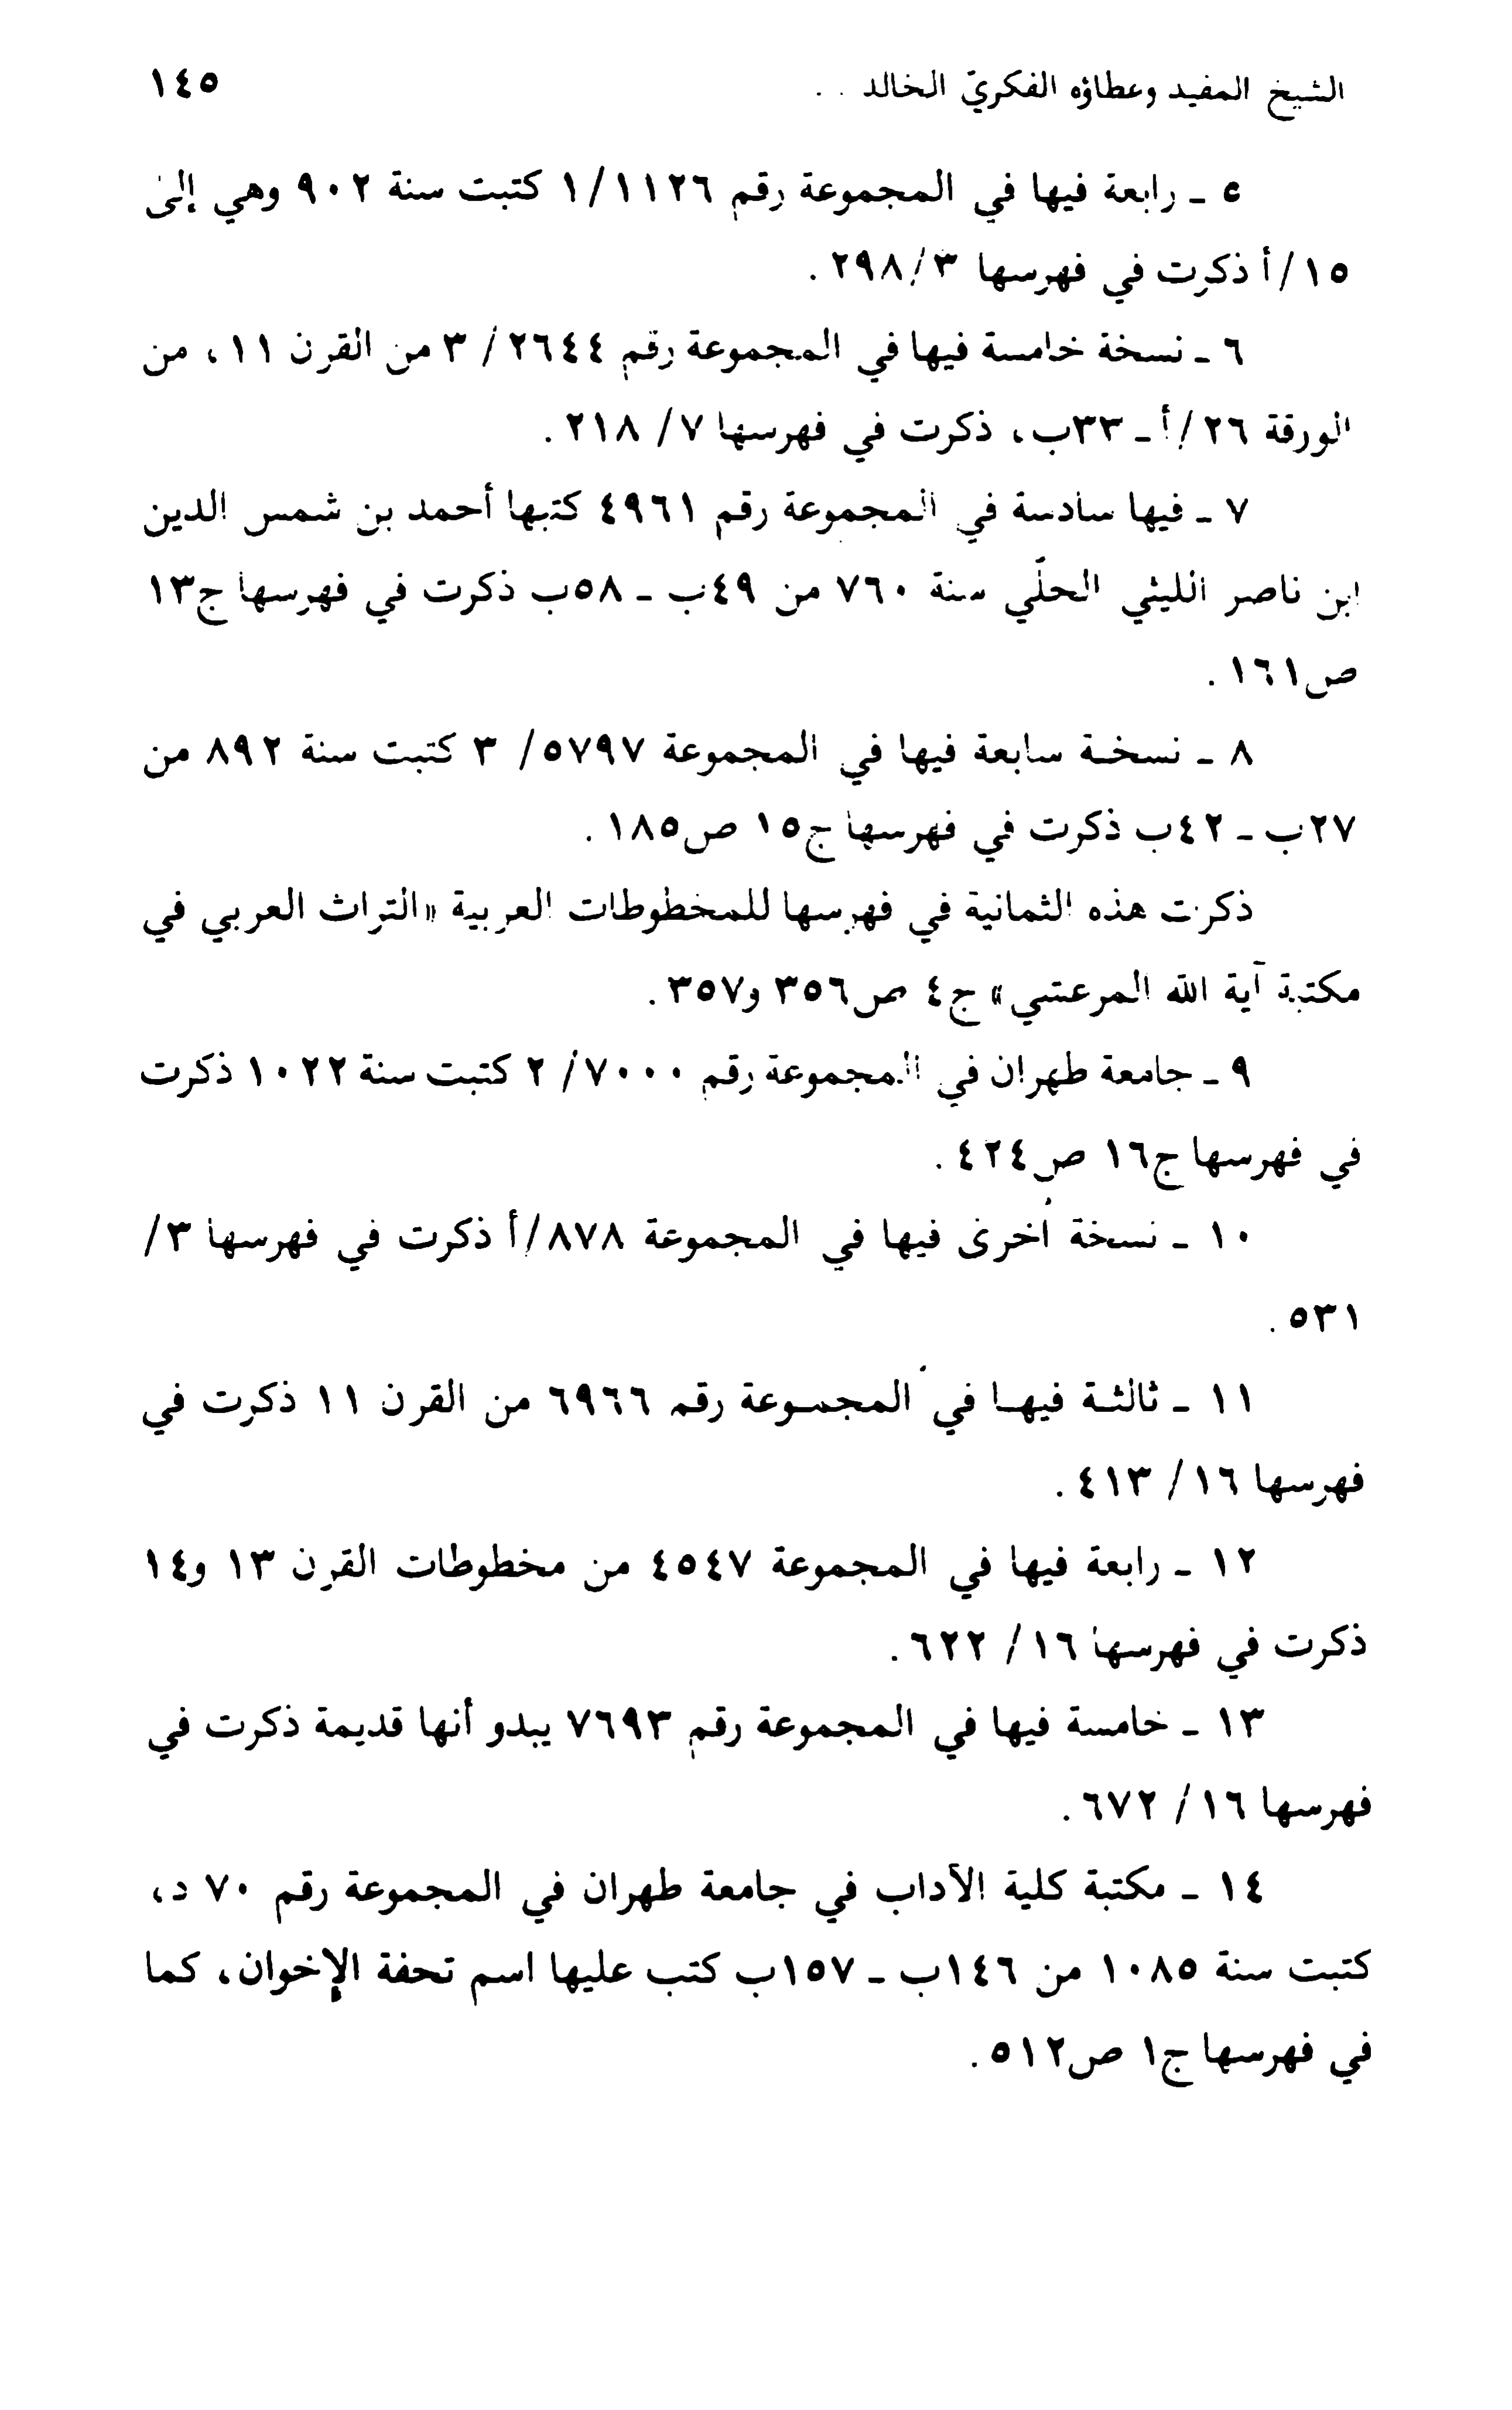 الشيخ المفيد وعطاؤه الفكريّ الخالد . . ١٤٥
٥ ـ رابعة فيها في المجموعة رقم ١/١١٢٦ كتبت سنة ٩٠٢ وهي إلىٰ
١٥/أ ذكرت في فهرسها ٢٩٨/٣ .
٦ ـ نسخة خامسة فيها في المجموعة رقم ٢٦٤٤ / ٣ من القرن ١١ ، من
الورقة ٢٦/أ ـ ٣٣ب ، ذكرت في فهرسها ٧/ ٢١٨ .
٧ ـ فيها سادسة في المجموعة رقم ٤٩٦١ كتبها أحمد بن شمس الدين
ابن ناصر الليثي الحلّي سنة ٧٦٠ من ٤٩ب ـ ٥٨ب ذكرت في فهرسها ج١٣
ص١٦١ .
٨ ـ نسخة سابعة فيها في المجموعة ٥٧٩٧/ ٣ كتبت سنة ٨٩٢ من
٢٧ب ـ ٤٢ب ذكرت في فهرسها ج١٥ ص١٨٥ .
ذكرت هذه الثمانية في فهرسها للمخطوطات العربية «التراث العربي في
مكتبة آية الله المرعشي» ج٤ ص٣٥٦ و٣٥٧ .
٩ ـ جامعة طهران في المجموعة رقم ٧٠٠٠/ ٢ كتبت سنة ١٠٢٢ ذكرت
في فهرسها ج١٦ ص٤٢٤ .
١٠ ـ نسخة اُخرىٰ فيها في المجموعة ٨٧٨/أ ذكرت في فهرسها ٣/
٥٣١ .
١١ ـ ثالثة فيها في المجموعة رقم ٦٩٦٦ من القرن ١١ ذكرت في
فهرسها ١٦/ ٤١٣ .
١٢ ـ رابعة فيها في المجموعة ٤٥٤٧ من مخطوطات القرن ١٣ و١٤
ذكرت في فهرسها ١٦/ ٦٢٢ .
١٣ ـ خامسة فيها في المجموعة رقم ٧٦٩٣ يبدو أنها قديمة ذكرت في
فهرسها ١٦/ ٦٧٢ .
١٤ ـ مكتبة كلية الآداب في جامعة طهران في المجموعة رقم ٧٠ د ،
كتبت سنة ١٠٨٥ من ١٤٦ب ـ ١٥٧ب كتب عليها اسم تحفة الإخوان ، كما
في فهرسها ج١ ص٥١٢ .